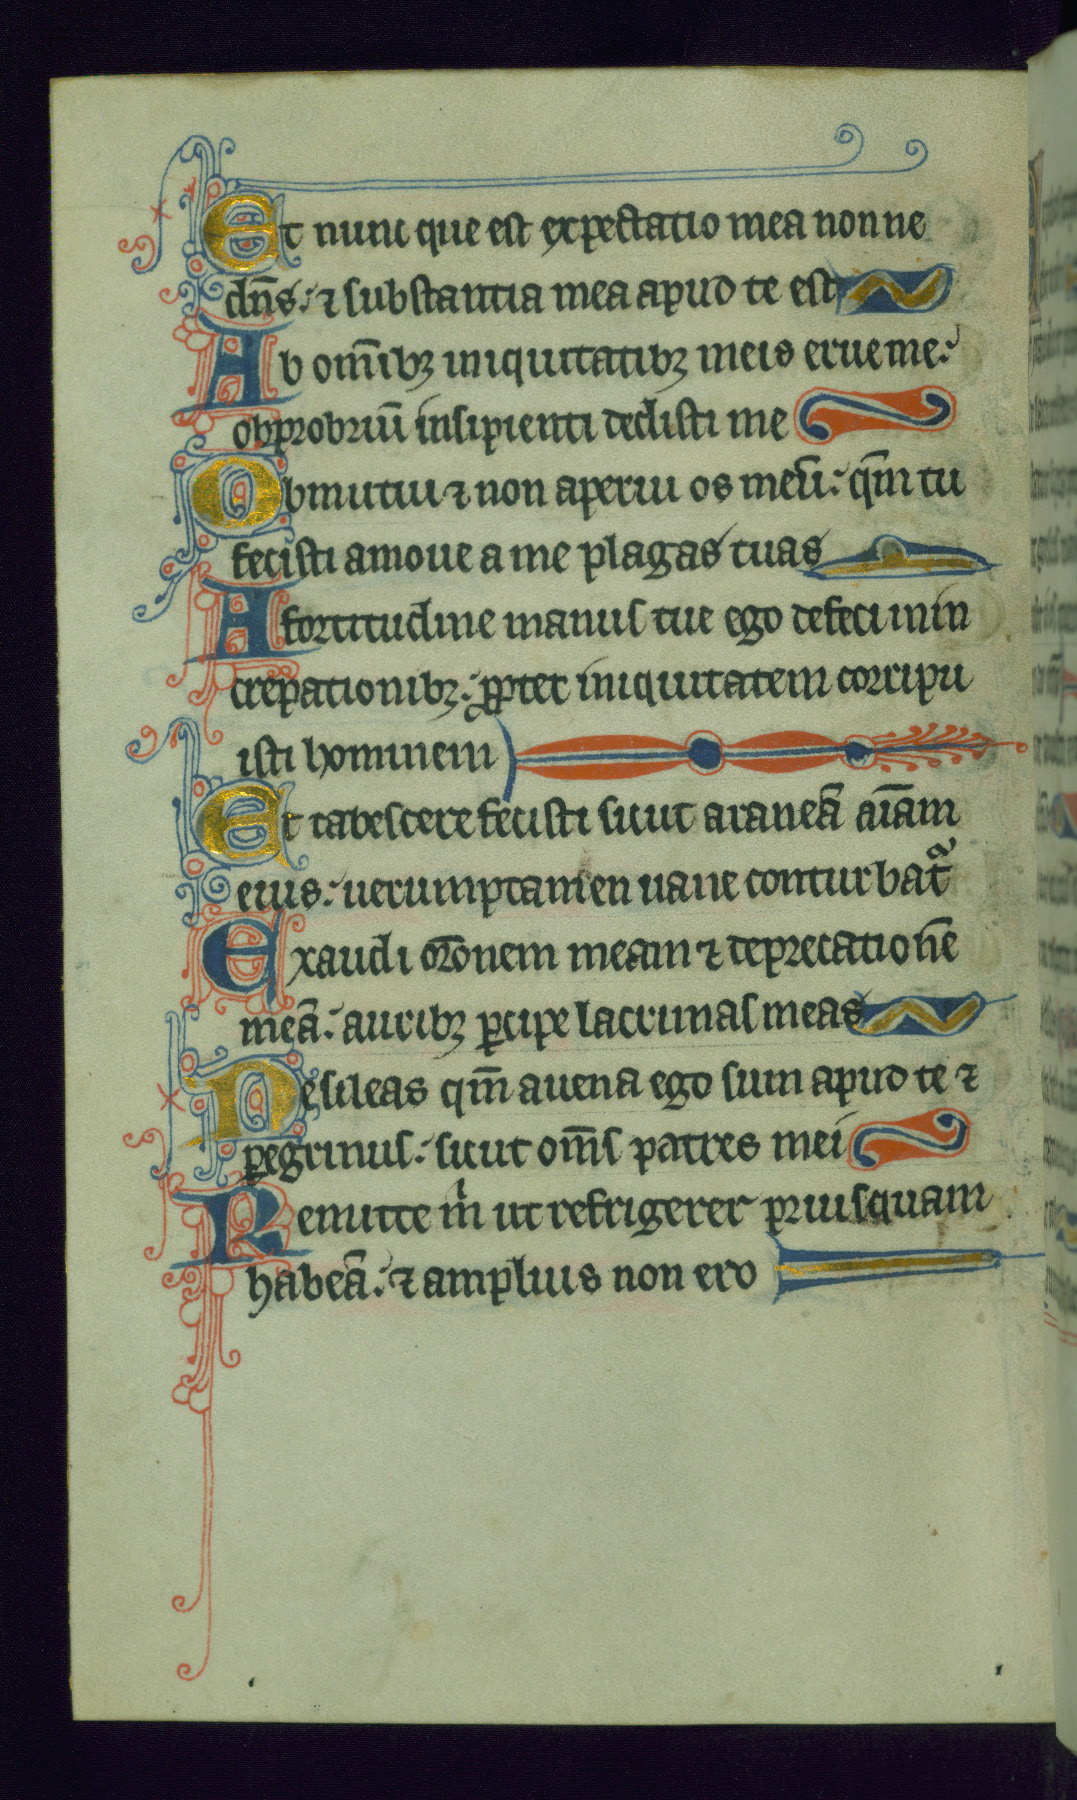 Et nunc que est expectatio mea nonne
dn̄s: ⁊ substantia mea apud te est
Ab om̄ibꝫ iniquitatibꝫ meis erue me:
obprobriū insipienti dedisti me
Obmutui ⁊ non aperui os meū: qm̄ tu
fecisti amoue a me plagas tuas
A fortitudine manus tue ego defeci in in
crepationibꝫ: ꝓpter iniquitatem corripu
isti hominem
Et tabescere fecisti sicut araneā aīam
eius: uerumptamen uane conturbat᷑
Exaudi or̄onem meam ⁊ deprecationē
meā: auribꝫ ꝑcipe lacrimas meas
Ne sileas qm̄ aduena ego sum apud te ⁊
ꝑegrinus: sicut om̄s patres mei
Remitte m̄ ut refrigerer priusquam
habeā: ⁊ amplius non ero